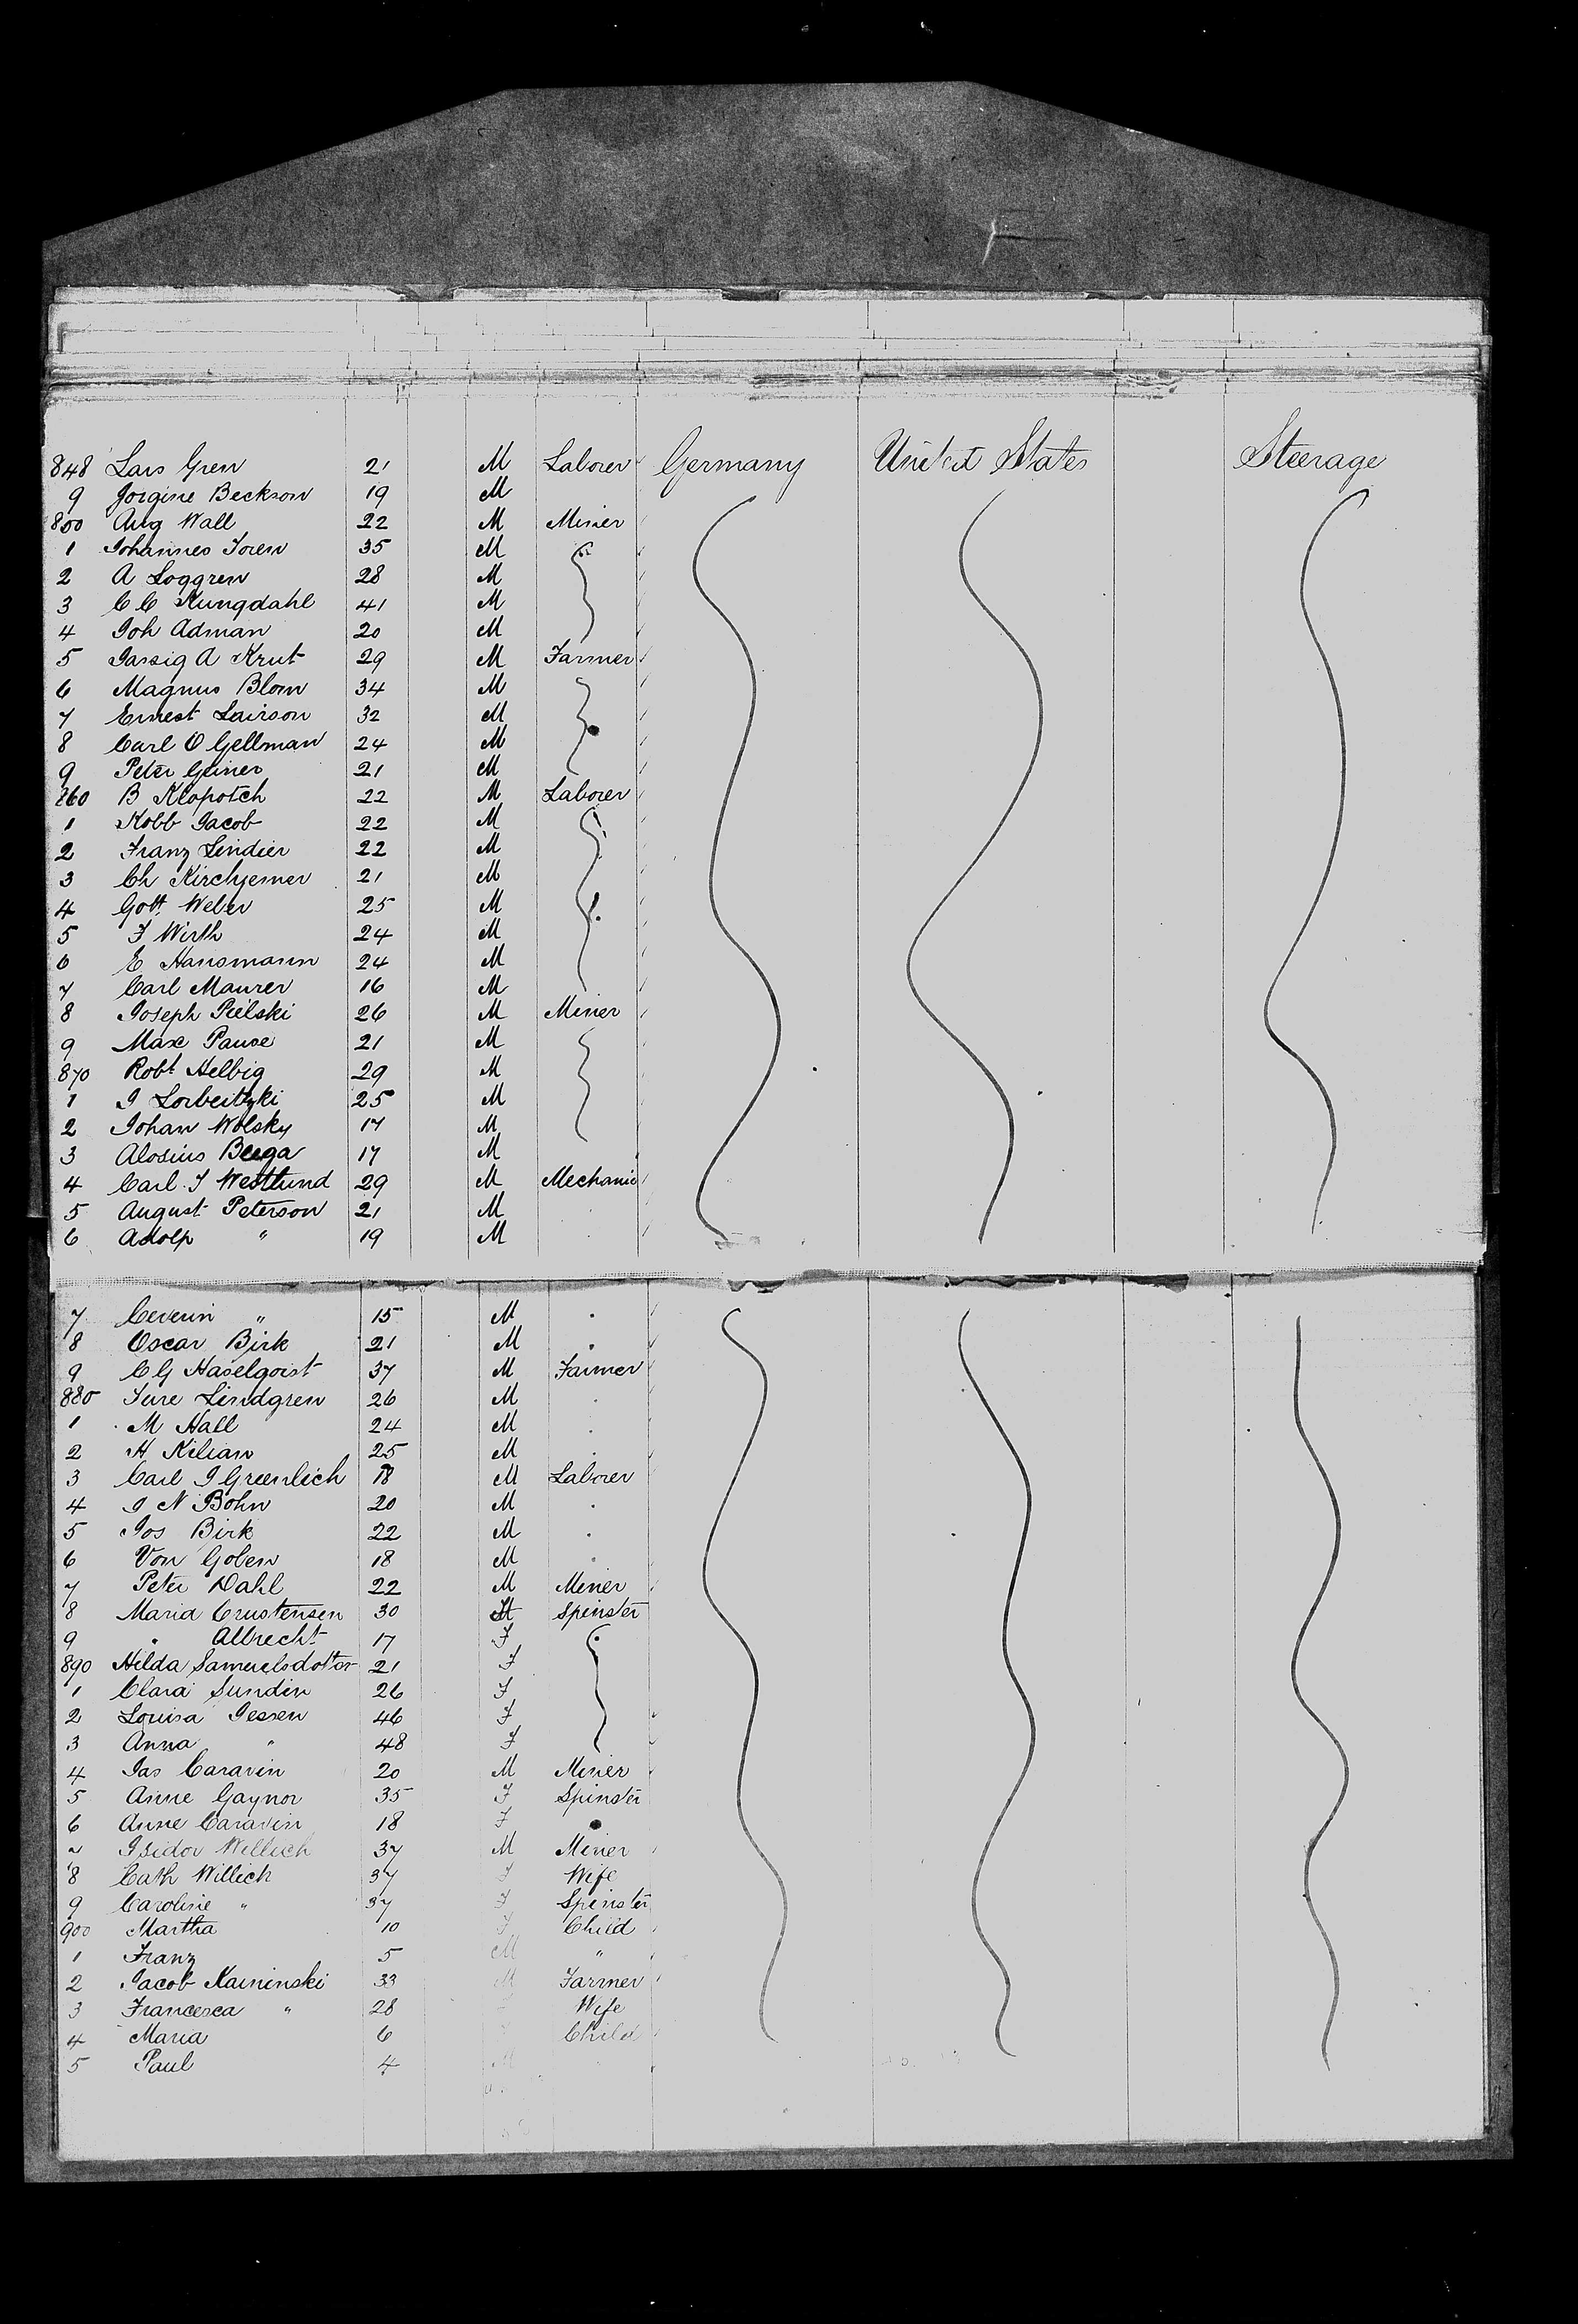 848 Lars Gren 21 M Laborer Germany United States Steerage
9 Jorgine Beckson 19 M
800 Aug Wall 22 M Miner
1 Johannes Toren 35 M
2 A Loggren 28 M
3 C C Kungdahl 41 M
4 Joh Adman 20 M
5 Jassig A Krut 29 M Farmer
6 Magnus Blom 34 M
7 Ernest Lairson 32 M
8 Carl O Gellman 24 M
9 Peter Geiner 21 M
860 B Klopotch 22 M Laborer
1 Kobb Jacob 22 M
2 Franz Lindier 22 M
3 Ch Kirchjemer 21 M
4 Gott. Weber 25 M
5 F Wirth 24 M
6 E Hansmann 24 M
7 Carl Maurer 16 M
8 Joseph Pielski 26 M Miner
9 Max Pause 21 M
870 Robt Helbig 29 M
1 J Lorbeitzki 25 M
2 Johan Wolsky 17 M
3 Alosius Beega 17 M
4 Carl J Westlund 29 M Mechanic
5 August Peterson 21 M
6 Adolp " 19 M
7 Ceverin " 15 M
8 Oscar Birk 21 M
9 C G Haselqoist 37 M Farmer
880 Ture Lindgren 26 M
1 M Hall 24 M
2 H Kilian 25 M
3 Carl J Greenlich 18 M Laborer
4 J N Bohn 20 M
5 Jos Birk 22 M
6 Von Goben 18 M
7 Peter Dahl 22 M Miner
8 Maria Crustensen 30 Spinster
9 " Albrecht 17 F
890 Hilda Samuelsdotter 21 F
1 Clara Sundin 26 F
2 Louisa Jessen 46 F
3 Anna " 48 F
4 Jas Caravin 20 M Miner
5 Anne Gaynor 35 F Spinster
6 Anne Caravin 18 F
7 Isidor Willich 37 M Miner
8 Cath Willich 37 F Wife
9 Caroline " 37 F Spinster
900 Martha 10 F Child
1 Franz 5 M "
2 Jacob Kaininski 33 M Farmer
3 Francesca " 28 Wife
4 Maria 6 Child
5 Paul 4 M